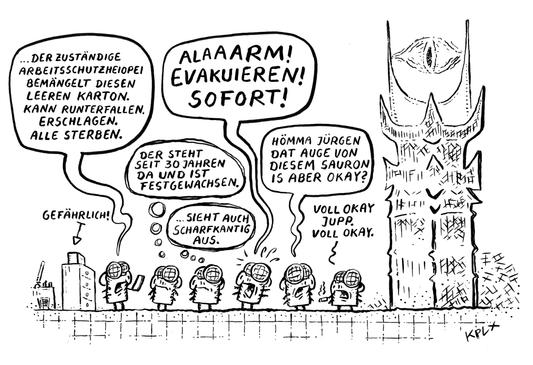 ...DER ZUSTÄNDIGE
ARBEITSSCHUTZHEIOPEI
BEMÄNGELT DIESEN
LEEREN KARTON.
KANN RUNTERFALLEN,
ERSCHLAGEN.
ALLE STERBEN.
GEFÄHRLICH!
DER STEHT
SEIT 30 JAHREN
DA UND IST
FESTGEWACHSEN.
...SIEHT AUCH
SCHARFKANTIG
AUS.
ALAAARM!
EVAKUIEREN!
SOFORT!
HÖMMA JÜRGEN
DAT AUGE VON
DIESEM SAURON
IS ABER OKAY?
VOLL OKAY
JUPP.
VOLL OKAY.